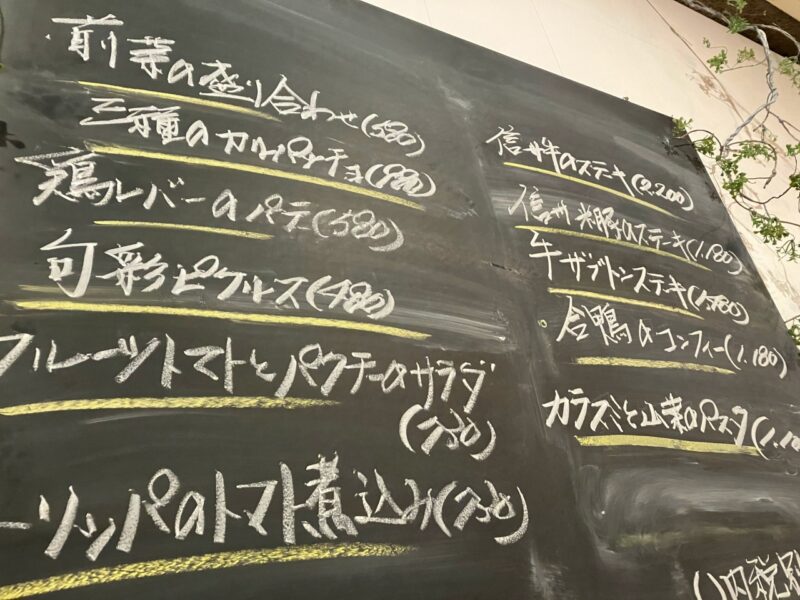 前菜の盛り合わせ(580)
三種のカルパッチョ(980)
鶏レバーのパテ(580)
旬彩ピクルス(480)
フルーツトマトとパクチーのサラダ
(730)
ーリッパのトマト煮込み(730)
信州牛のステーキ(2.200)
信州米豚のステーキ(1.180)
牛ザブトンステーキ(1.480)
合鴨のコンフィー(1.180)
カラスミと山菜のパスタ(1.1
( )内税別